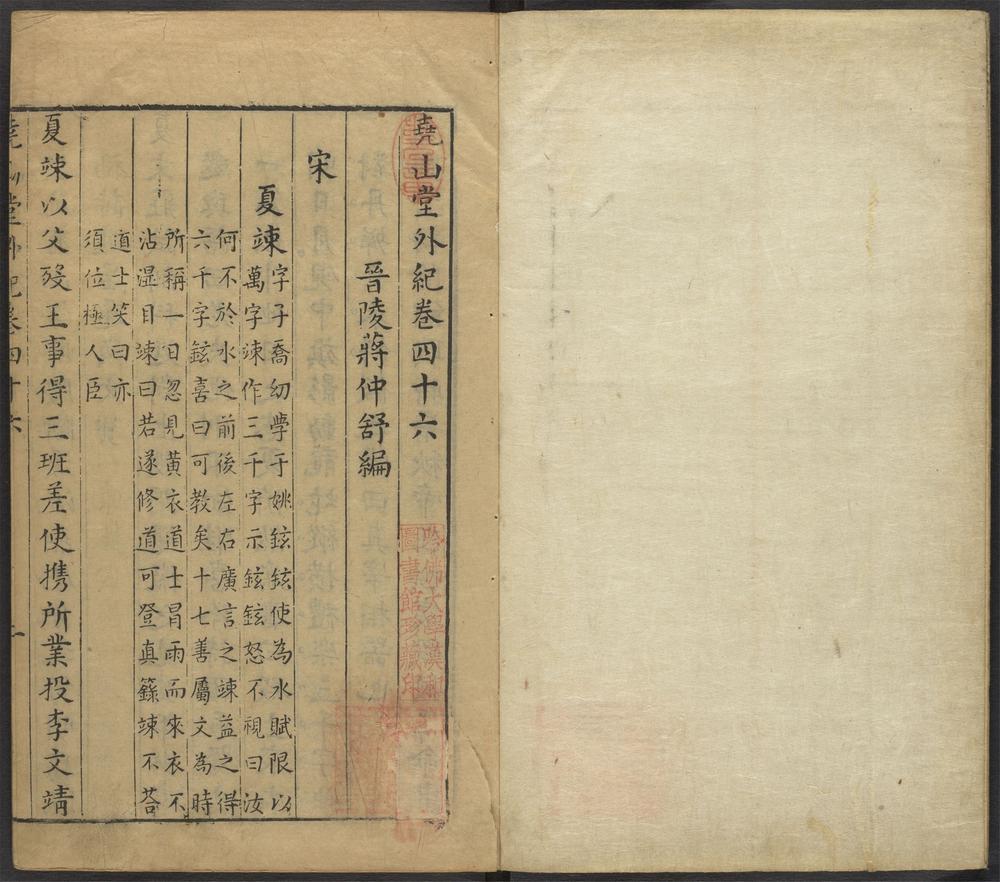 堯山堂外紀卷四十六
晉陵蔣仲舒編
宋
夏竦
字子喬幼學于姚鉉鉉使為水賦限以
萬字竦作三千字示鉉鉉怒不視曰汝
何不於水之前後左右廣言之竦益之得
六千字鉉喜曰可教矣十七善屬文為時
所稱一日忽見黃衣道士冒雨而來衣不
沾濕目竦曰若遂修道可登真籙竦不荅
道士笑曰亦
須位極人臣
夏竦以父歿王事得三班差使携所業投李文靖
堯山堂外紀卷四十六 一
哈佛大學漢和
圖書館珍藏印